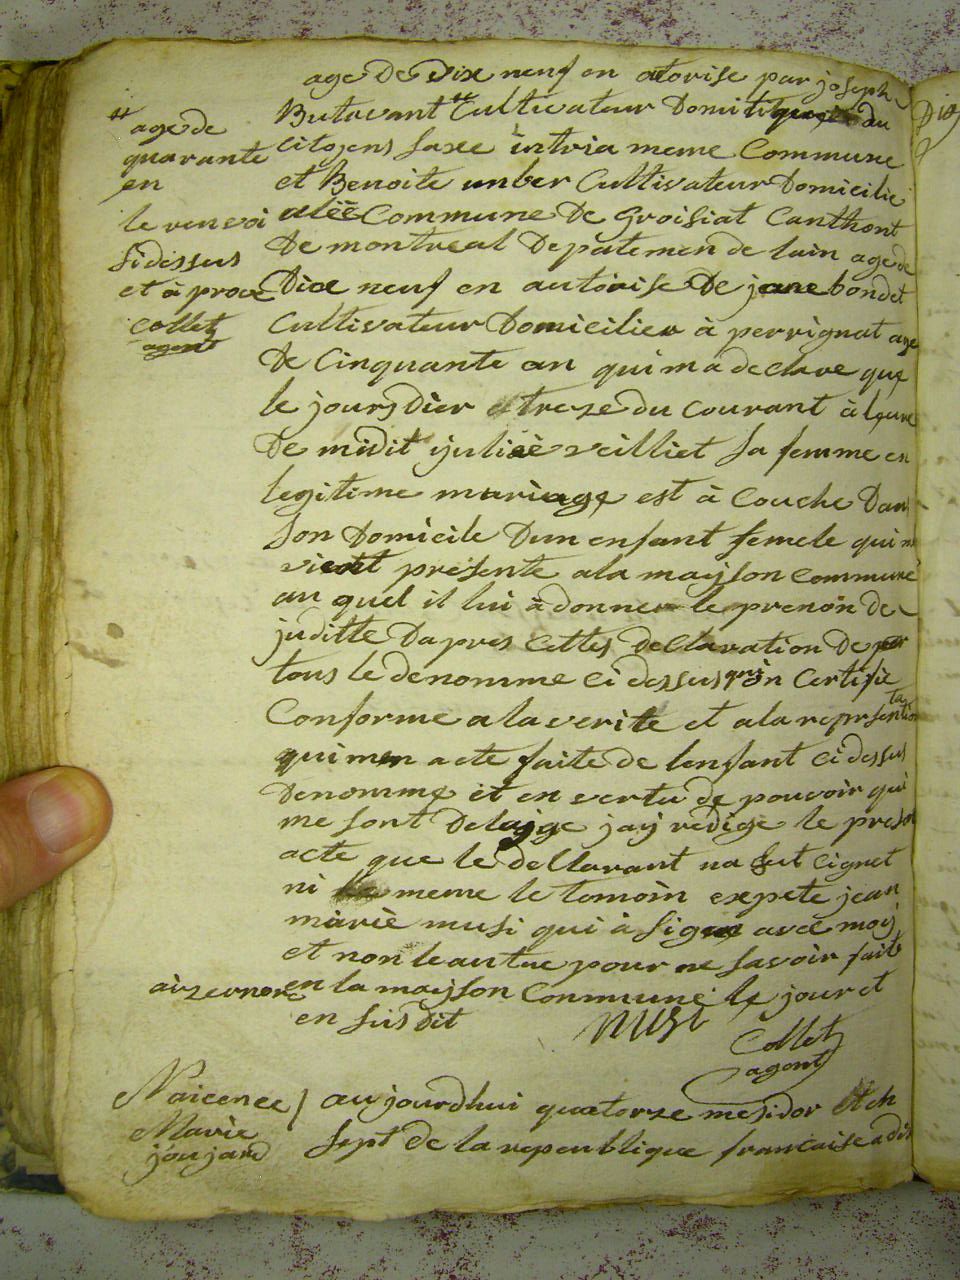 age de dix neuf en atorise par joseph
Butavant " Cultivateur Domitique du
Citoyens saxe intria meme Commune
et Benoite unber Cultivateur Domicilie
alée Commune De Groisiat Canthont
De montreal Depatemen de lain age de
Dixe neuf en autorise De jeane bondet
Cultivateur Domicilier à perrignat age
De Cinquante an qui ma declare que
le jours dier treze du courant à leure
De midit julieè veilliet sa femme en
legitime mariage est à Couche Dan
son Domicile Dun enfant femele qui
vient présente ala mayson commune
au quel il lui à donner le prenon de
juditte Dapres Cettes declaration De
tous le denomme ci dessus on certifie
Conforme a la verite et a la reprsentation
qui men a ete faite de lenfant ci dessus
Denomme et en vertu de pouvoir qui
me sont Delaige jay redige le presen
acte que le dellarant na sut cignet
ni meme le tomoin expete jean
mariè musi qui à signe avec moy
et non le autre pour ne savoir faite
en la mayson Commune le jour et
en sus dit
musi
Collet
agent
" age de
quarante
en
le renvoi
sidessus
et à prove
collet
agent
aizernore
Naicence
Marie
joujard
aujourdhui quatorze mesidor
sept de la republique francaise a dis